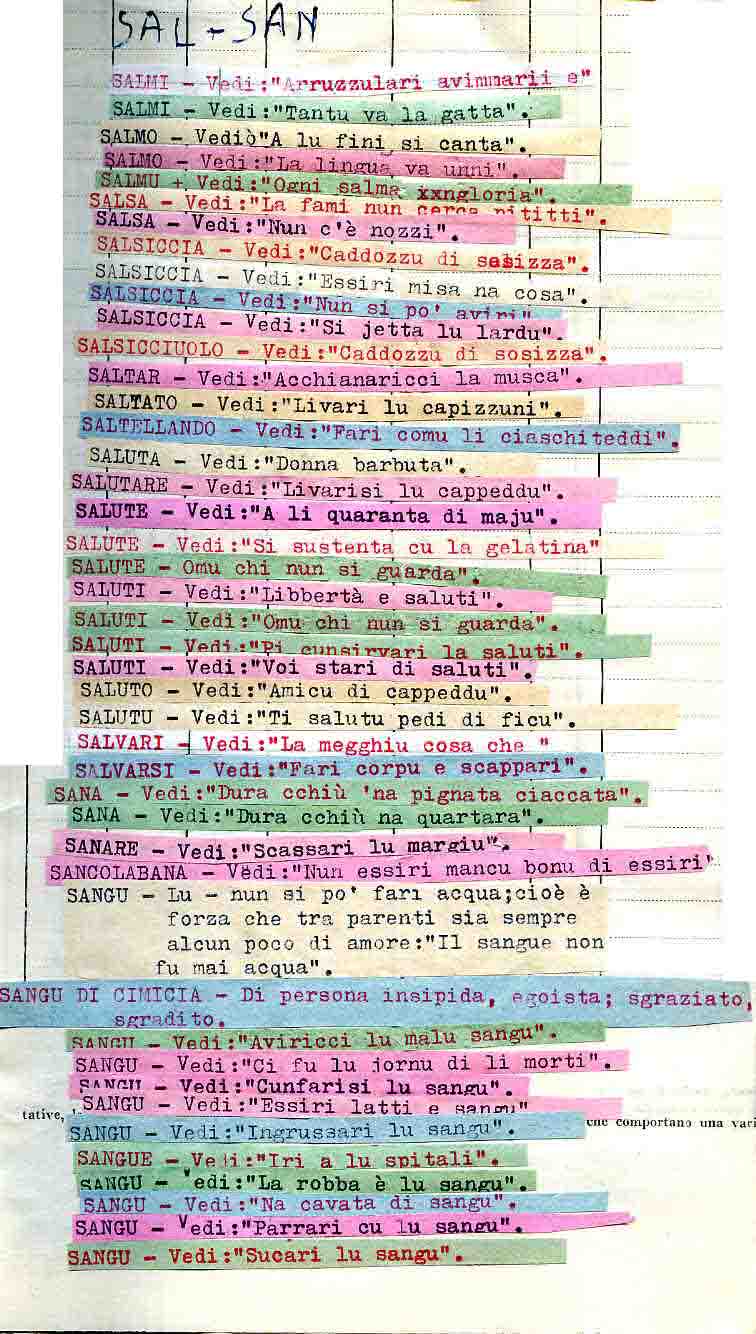 SAL-SAN
SALMI - Vedi:"Arruzzulari avimmarii e"
SALMI - Vedi:"Tantu va la gatta".
SALMO - Vediò"A lu fini si canta".
SALMO - Vedi:"La lingua va unni".
SALMU + Vedi:"Ogni salma xxngloria".
SALSA - Vedi:"La fami nun cerca pititti".
SALSA - Vedi:"Nun c'è nozzi".
SALSICCIA - Vedi:"Caddozzu di sasizza".
SALSICCIA - Vedi:"Essiri misa na cosa".
SALSICCIA - Vedi:"Nun si po' aviri"
SALSICCIA - Vedi:"Si jetta lu lardu".
SALSICCIUOLO - Vedi:"Caddozzu di sosizza".
SALTAR - Vedi:"Acchianaricci la musca".
SALTATO - Vedi:"Livari lu capizzuni".
SALTELLANDO - Vedi:"Fari comu li ciaschiteddi".
SALUTA - Vedi:"Donna barbuta".
SALUTARE - Vedi:"Livarisi lu cappeddu".
SALUTE - Vedi:"A li quaranta di maju".
SALUTE - Vedi:"Si sustenta cu la gelatina"
SALUTE - Omu chi nun si guarda".
SALUTI - Vedi:"Libbertà e saluti".
SALUTI - Vedi:"Omu chi nun si guarda".
SALUTI - Vedi:"Pi cunsirvari la saluti".
SALUTI - Vedi:"Voi stari di saluti".
SALUTO - Vedi:"Amicu di cappeddu".
SALUTU - Vedi:"Ti salutu pedi di ficu".
SALVARI - Vedi:"La megghiu cosa che "
SALVARSI - Vedi:"Fari corpu e scappari".
SANA - Vedi:"Dura cchiù 'na pignata ciaccata".
SANA - Vedi:"Dura cchiù na quartara".
SANARE - Vedi:"Scassari lu margiu".
SANCOLABANA - Vedi:"Nun essiri mancu bonu di essiri"
SANGU - Lu - nun si po' fari acqua;cioè è
forza che tra parenti sia sempre
alcun poco di amore:"Il sangue non
fu mai acqua".
SANGU DI CIMICIA - Di persona insipida, egoista; sgraziato,
sgradito.
SANGU - Vedi:"Aviricci lu malu sangu".
SANGU - Vedi:"Ci fu lu jornu di li morti".
SANGU - Vedi:"Cunfarisi lu sangu".
SANGU - Vedi:"Essiri latti e sangu"
tative, che comportano una vari
SANGU - Vedi:"Ingrussari lu sangu".
SANGUE - Vedi:"Iri a lu spitali".
SANGU - Vedi:"La robba è lu sangu".
SANGU - Vedi:"Na cavata di sangu".
SANGU - Vedi:"Parrari cu lu sangu".
SANGU - Vedi:"Sucari lu sangu".